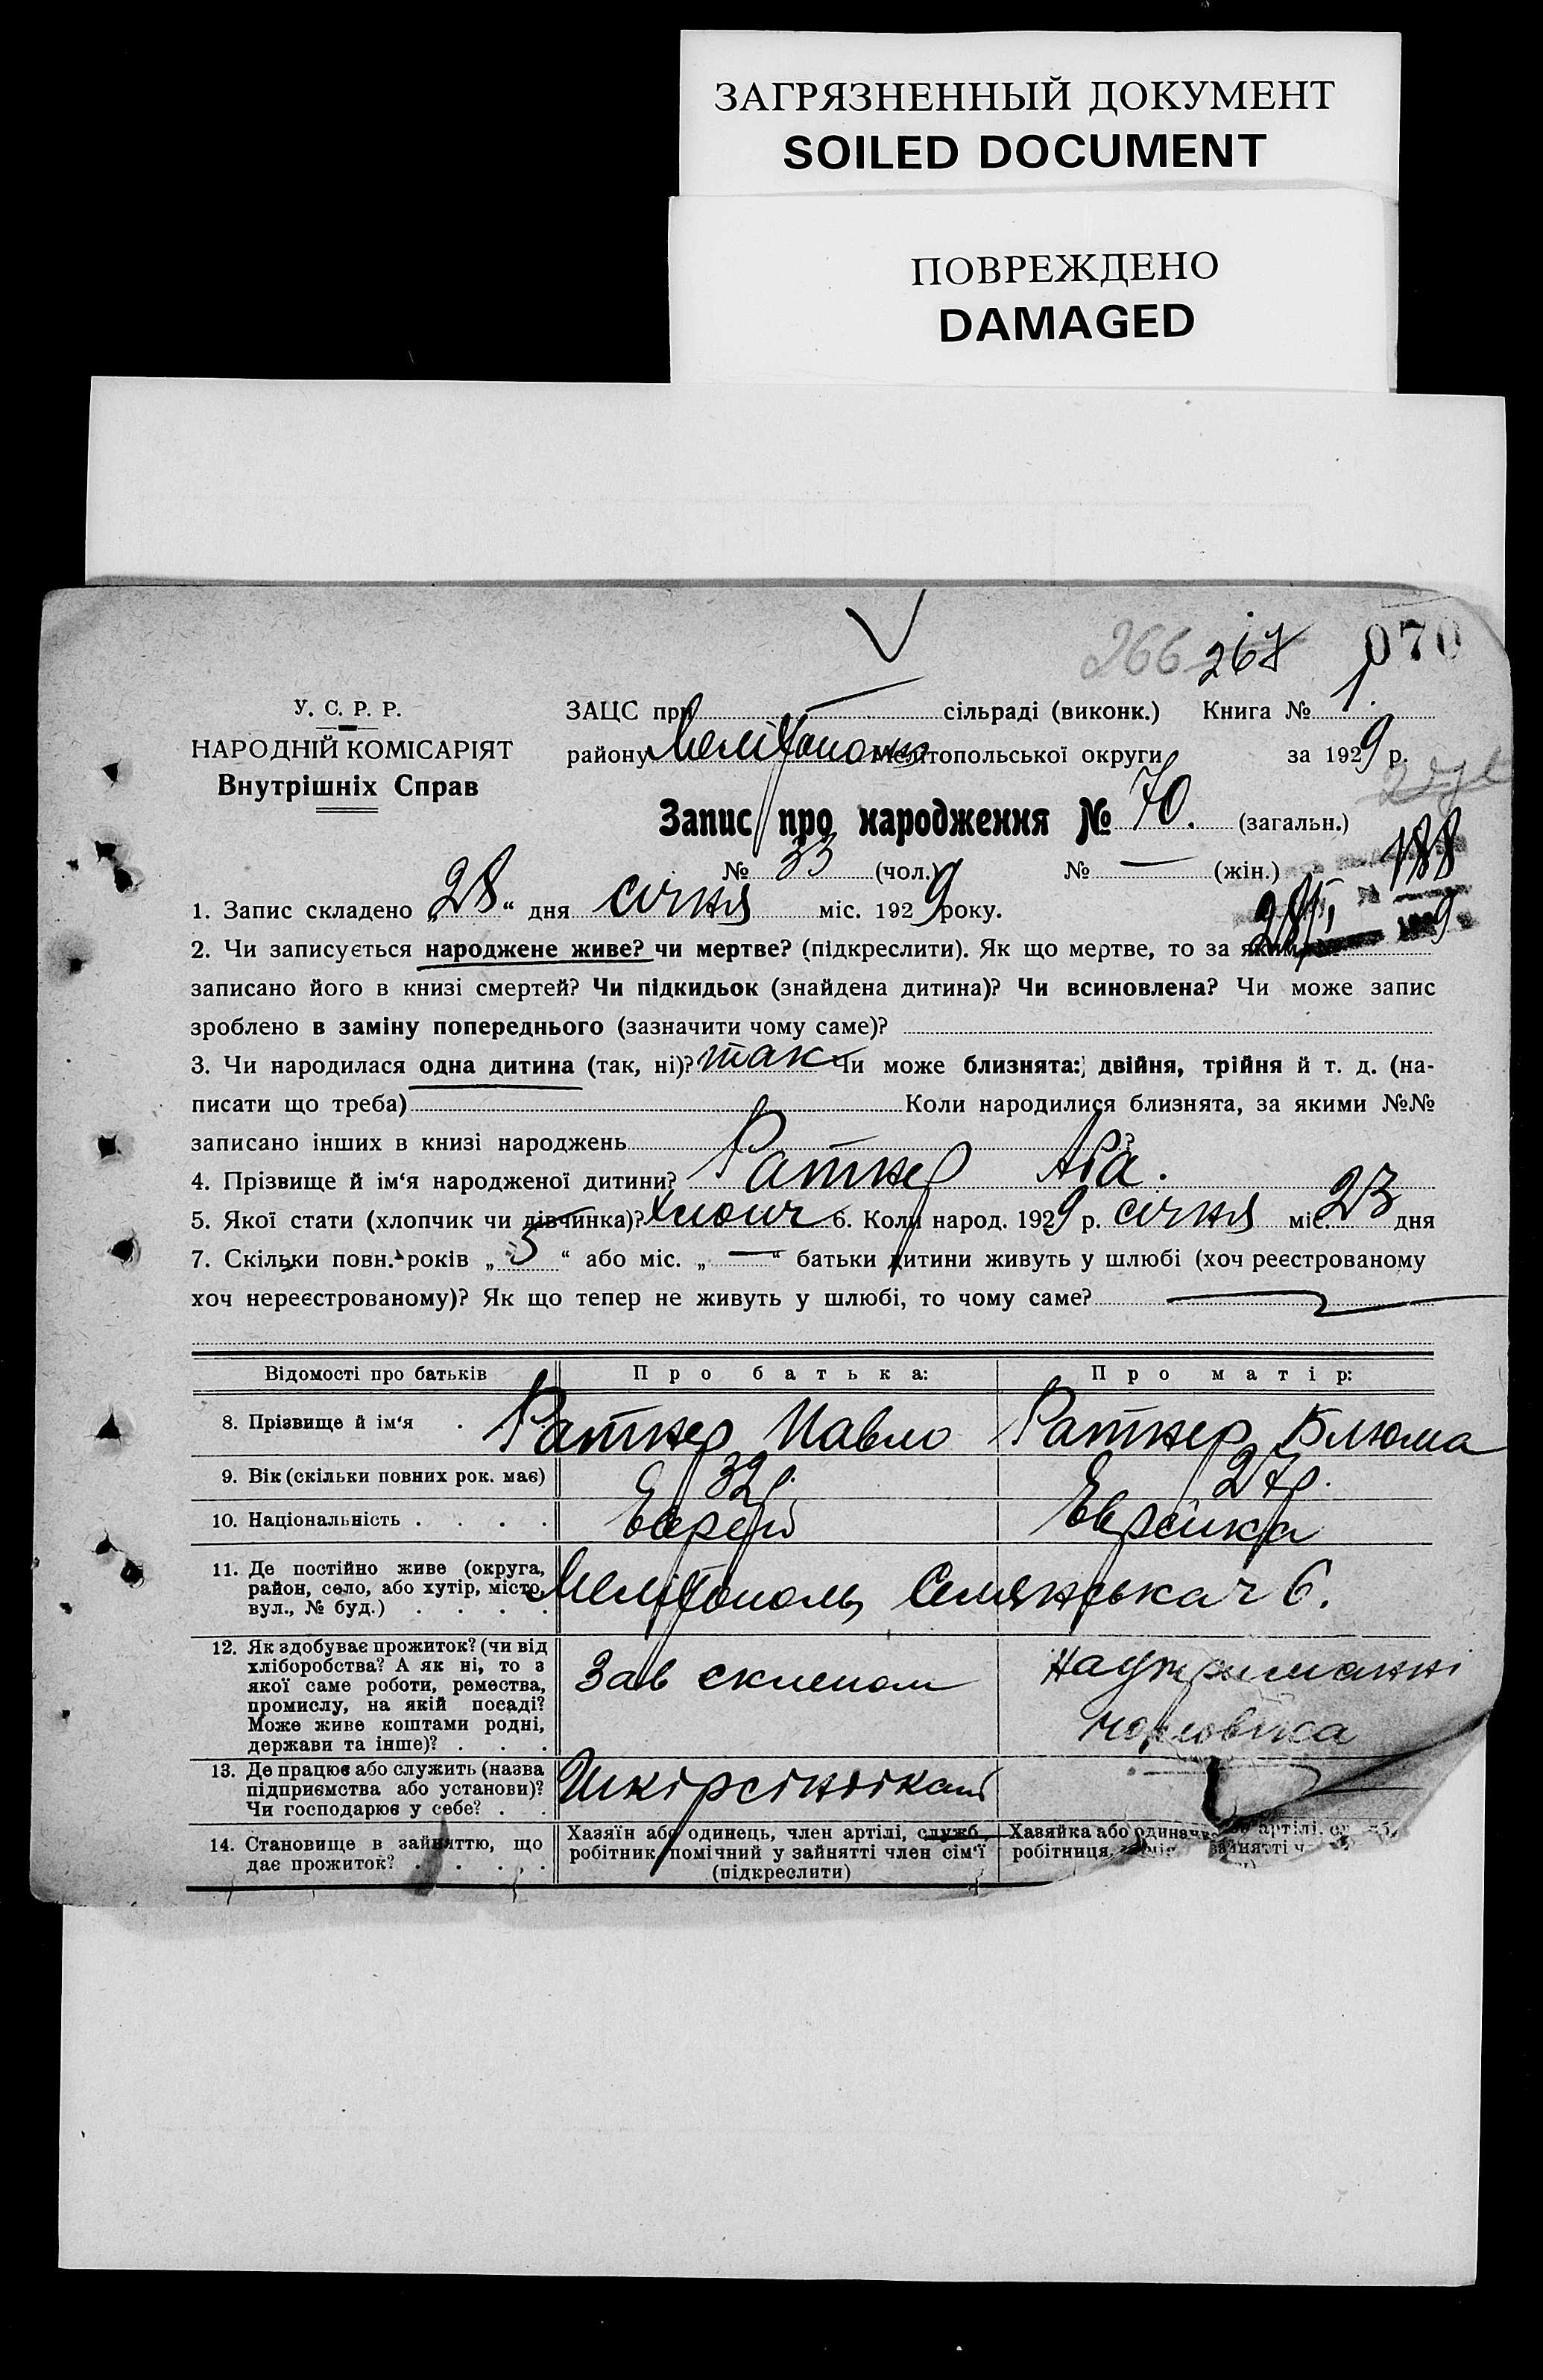 ЗАГРЯЗНЕННЫЙ ДОКУМЕНТ
SOILED DOCUMENT
ПОВРЕЖДЕНО
DAMAGED
266 267 070
У. С. Р. Р.
НАРОДНІЙ КОМІСАРІЯТ
Внутрішніх Справ
ЗАЦС при — сільраді (виконк.) Книга № 1.
району Мелітополь Мелітопольської округи за 1929 р.
Запис про народження № 70. (загальн.)
№ 33 (чол.) № — (жін.) 188
1. Запис складено „28“ дня січня міс. 1929 року.
2. Чи записується народжене живе? чи мертве? (підкреслити). Як що мертве, то за яким
записано його в книзі смертей? Чи підкидьок (знайдена дитина)? Чи всиновлена? Чи може запис
зроблено в заміну попереднього (зазначити чому саме)?
3. Чи народилася одна дитина (так, ні)? так Чи може близнята: двійня, трійня й т. д. (на-
писати що треба) Коли народилися близнята, за якими №№
записано інших в книзі народжень ?
4. Прізвище й ім‘я народженої дитини? Ратнер Ара.
5. Якої стати (хлопчик чи дівчинка)? Хлопч 6. Коли народ. 1929 р. січня міс. 23 дня
7. Скільки повн. років „5“ або міс. „—“ батьки дитини живуть у шлюбі (хоч реєстрованому
хоч нереєстрованому)? Як що тепер не живуть у шлюбі, то чому саме? —
Відомості про батьків Про батька: Про матір:
8. Прізвище й ім‘я Ратнер Павло Ратнер Блюма
9. Вік (скільки повних рок. має) 32 р. 27 р.
10. Національність Єврей Єврейка
11. Де постійно живе (округа,
район, село, або хутір, місто,
вул., № буд.)
Мелітополь, 6.
12. Як здобуває прожиток? (чи від
хліборобства? А як ні, то з
якої саме роботи, ремества,
промислу, на якій посаді?
Може живе коштами родні,
держави та інше)?
Зав склепом
На утриманні
чоловіка
13. Де працює або служить (назва
підприємства або установи)?
Чи господарює у себе?
Шкірсіндікат
14. Становище в зайняттю, що
дає прожиток?
Хазяїн або одинець, член артілі, служб.,
робітник, помічний у зайнятті член сім‘ї
(підкреслити)
Хазяйка або одиначка артілі,
робітниця, зайнятті